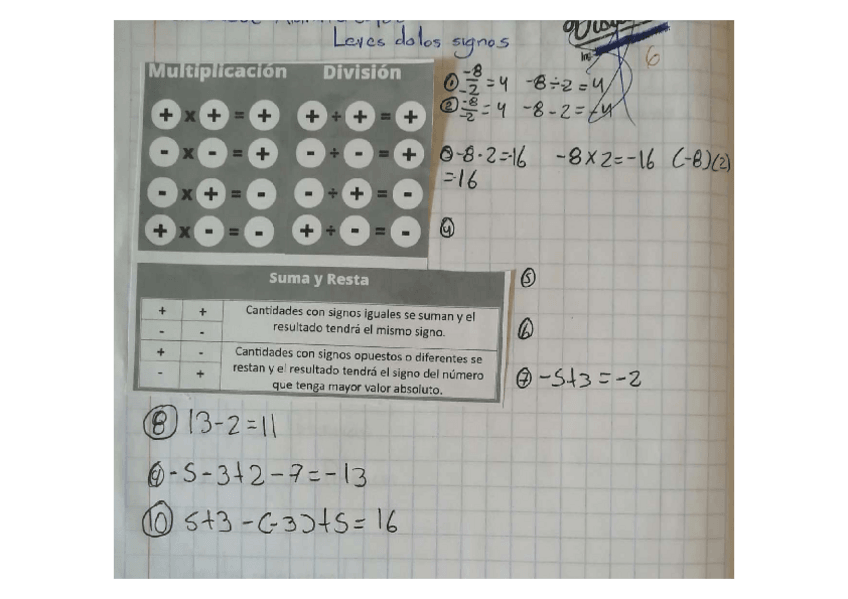 Leyes de los signos
6
Multiplicación División
+ x + = + + ÷ + = +
- x - = + - ÷ - = +
- x + = - - ÷ + = -
+ x - = - + ÷ - = -
① -8/-2 = 4 -8÷-2 = 4
② -8/-2 = 4 -8-2 = -4
③ -8·2 = -16 -8×2 = -16 (-8)(2)
= -16
④
Suma y Resta
+ + Cantidades con signos iguales se suman y el
- - resultado tendrá el mismo signo.
+ - Cantidades con signos opuestos o diferentes se
- + restan y el resultado tendrá el signo del número
que tenga mayor valor absoluto.
⑤
⑥
⑦ -5+3 = -2
⑧ 13-2 = 11
⑨ -5-3+2-7 = -13
⑩ 5+3-(-3)+5 = 16